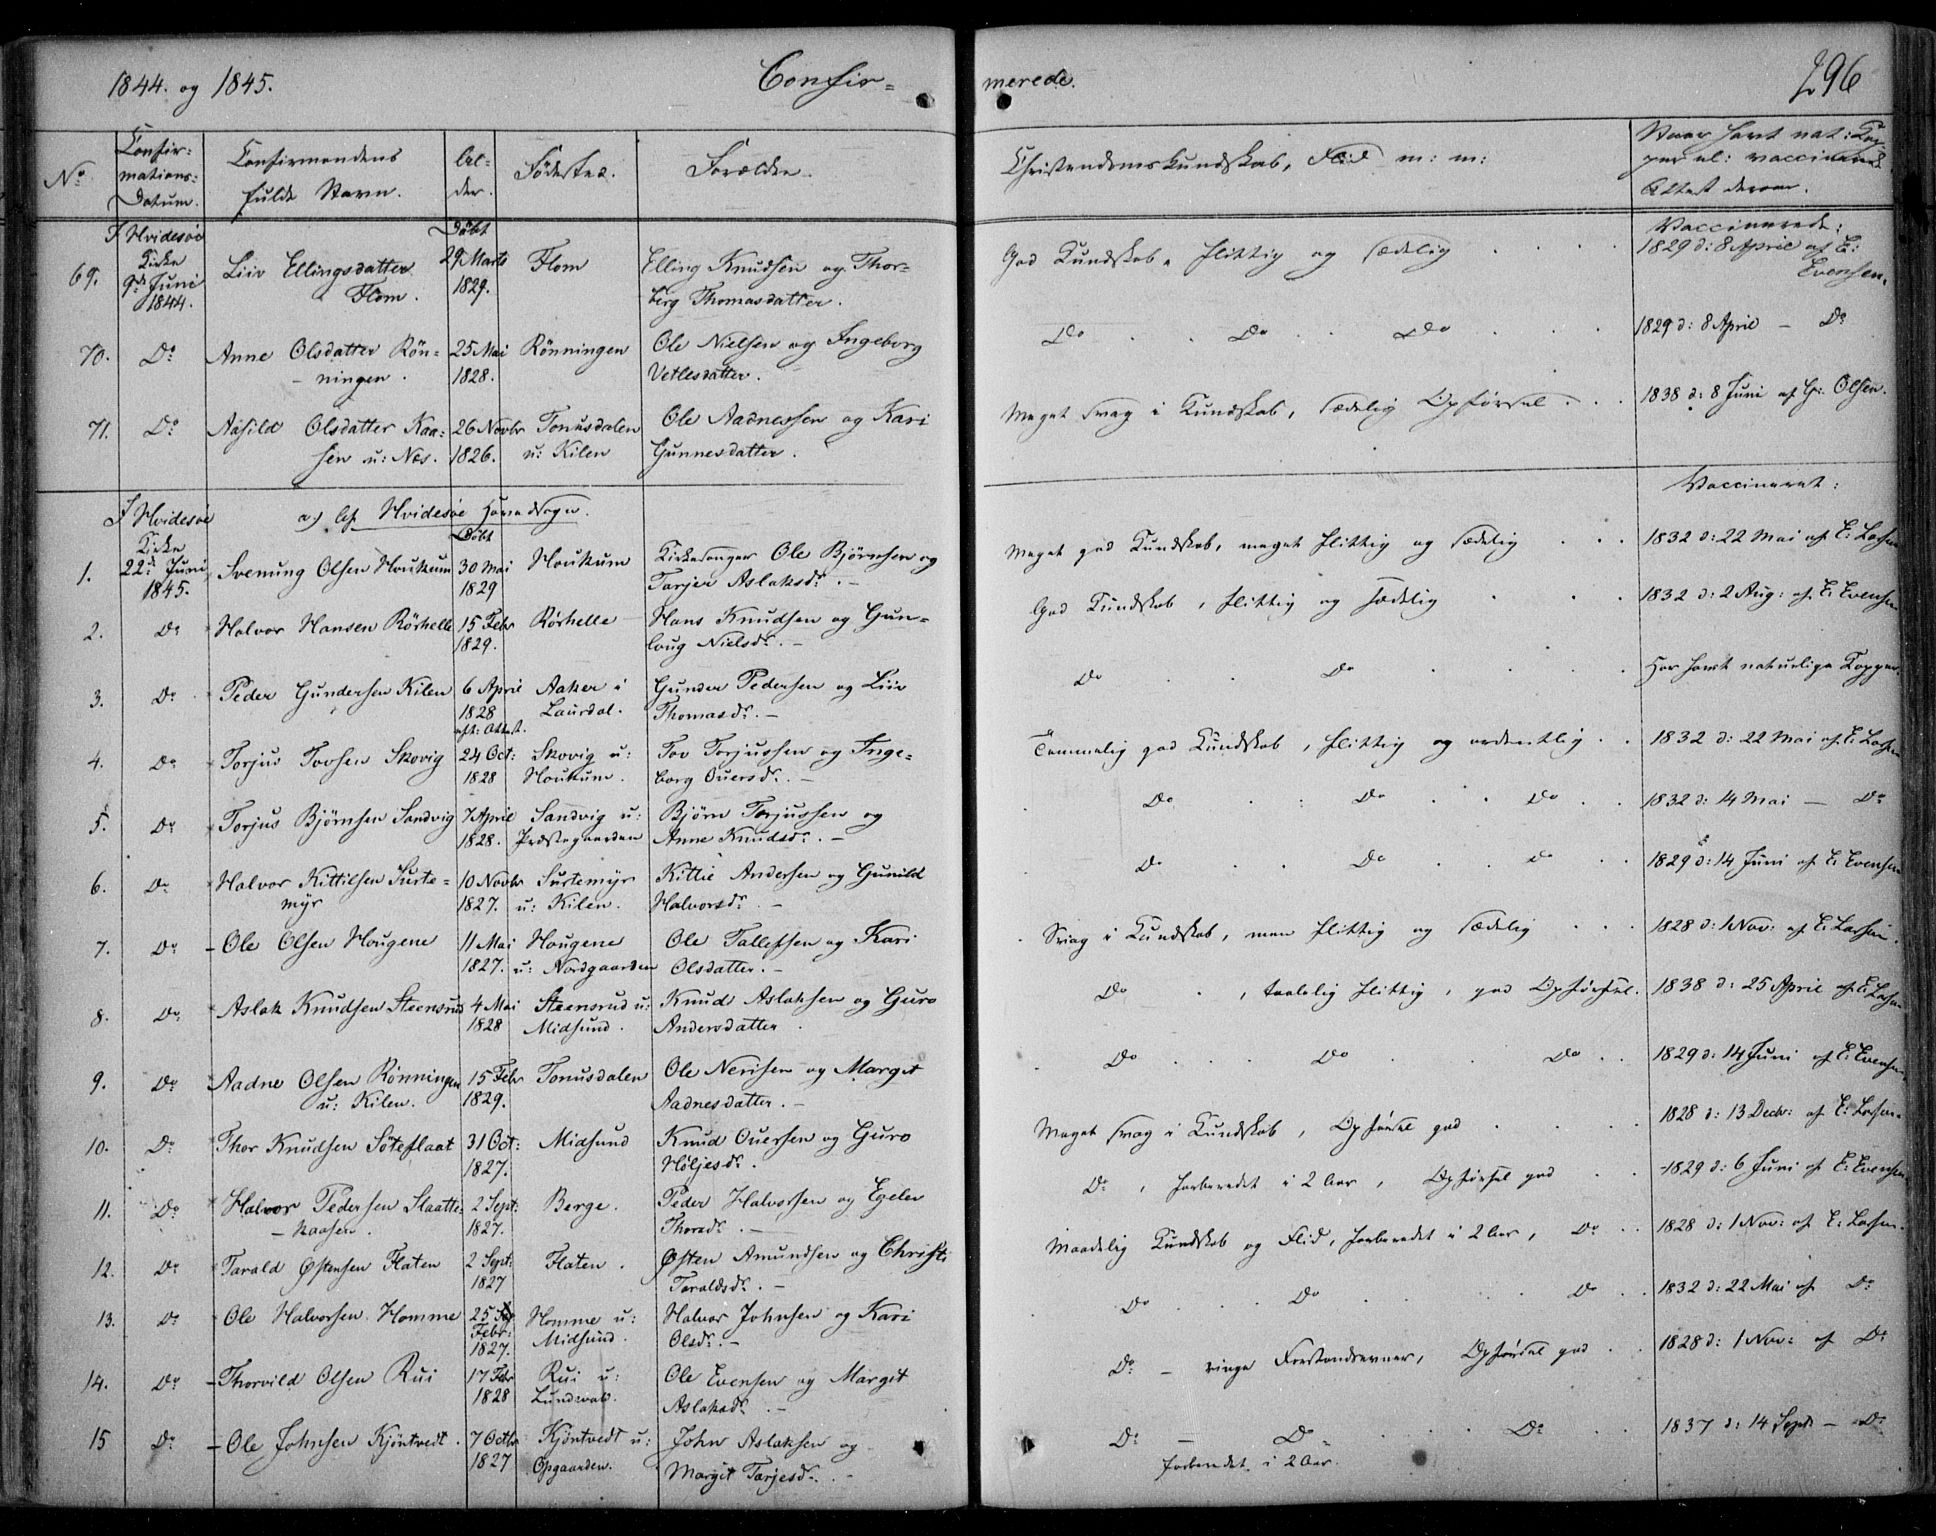 1844. og 1845. Confir= merede. 296
No. Confir= mations= Datum. Confirmandens fulde Navn. Al= der. Fødested. Forældre. Christendomskundskab, Flid m: m: Naar havt nat: Kop= per el: vaccineret Attest derom.
I Hvidesøe Kirke 9de Juni 1844. Døbt Vaccinerede:
69. Liiv Ellingsdatter Flom. 29 Marts 1829. Flom Elling Knudsen og Thor= berg Thomasdatter. God Kundskab, flittig og sædelig 1829 d: 8 April af E: Evensen.
70. Do Anne Olsdatter Røn= ningen. 25 Mai 1828. Rønningen Ole Nielsen og Ingeborg Vetlesdatter. Do Do Do 1829 d: 8 April — Do
71. Do Aasild Olsdatter Kaa= sen u: Næs. 26 Novbr 1826. Tonusdalen u: Kilen Ole Aadnessen og Kari Gunnesdatter. Meget svag i Kundskab, sædelig Opførsel 1838 d: 8 Juni af G: Olsen.
I Hvidesøe Kirke 22de Juni 1845. a) Af Hvidesøe Hovedsogn. Døbt Vaccineret:
1. Svenung Olsen Houkum 30 Mai 1829 Houkum Kirkesanger Ole Bjørnsen og Tarjer Aslaksdr. — Meget god Kundskab, meget flittig og sædelig 1832 d: 22 Mai af E: Larsen
2. Do Halvor Hansen Rørhelle 15 Febr 1829. Rørhelle Hans Knudsen og Gun= loug Nielsdr. — God Kundskab, flittig og sædelig 1832 d: 2 Aug: af E: Evensen
3. Do Peder Gundersen Kilen 6 April 1828 eft: Attest. Aaker i Laurdal. Gunder Pedersen og Liiv Thomasdr. — Do Do Har havt naturlige Kopper.
4. Do Torjus Tovsen Skovig 24 Oct: 1828 Skovig u: Houkum. Tov Torjussen og Inge= borg Ouersdr. — Temmelig god Kundskab, flittig og ordentlig 1832 d: 22 Mai af E: Larsen
5. Do Torjus Bjørnsen Sandvig 7 April 1828. Sandvig u: Præstegaarden Bjørn Torjussen og Anne Knudsdr. — Do Do Do 1832 d: 14 Mai — Do
6. Do Halvor Kittilsen Surte= myr 10 Novbr 1827. Surtemyr u: Kilen. Kittil Andersen og Gunild Halvorsdr. — Do Do Do 1829 d: 14 Juni af E: Evensen
7. Do Ole Olsen Hougene 11 Mai 1827. Hougene u: Nordgaarden Ole Tallefsen og Kari Olsdatter. — Svag i Kundskab, men flittig og sædelig 1828 d: 1 Nov: af E: Larsen.
8. Do Aslak Knudsen Steensrud 4 Mai 1828 Steensrud u: Midsund. Knud Aslaksen og Guro Andersdatter. Do , taalelig flittig, god Opførsel. 1838 d: 25 April af E: Larsen
9. Do Aadne Olsen Rønningen u: Kilen. 15 Febr 1829. Tonusdalen Ole Nerisen og Margit Aadnesdatter. — Do Do Do 1829 d: 14 Juni af E: Evensen
10. Do Thor Knudsen Søteflaat 31 Oct: 1827. Midsund Knud Ouersen og Guro Høljesdr. Meget svag i Kundskab, Opførsel god 1828 d: 13 Decbr: af E: Larsen
11. Do Halvor Pedersen Slaatte= kaasen. 2 Sept: 1827. Berge. Peder Halvorsen og Egelev Thorsdr. — Do, forberedet i 2 Aar, Opførsel god 1829 d: 6 Juni af E: Evensen
12. Do Tarald Østensen Flaten 2 Sept: 1827 Flaten. Østen Amundsen og Christi Taraldsdr. — Maadelig Kundskab og Flid, forberedet i 2 Aar, Do 1828 d: 1 Nov: af E: Larsen
13. Do Ole Halvorsen Homme 25 Febr: 1827. Homme u: Midsund. Halvor Johnsen og Kari Olsdr. — Do Do Do 1832 d: 22 Mai af Do
14. Do Thorvild Olsen Rui 17 Febr 1828 Rui u: Lundevall. Ole Evensen og Margit Aslaksdr. — Do — ringe Forstandsevner, Opførsel god 1828 d: 1 Nov: af Do
15 Do Ole Johnsen Kjøntvedt. 7 Octbr 1827 Kjøntvedt u: Opgaarden. John Aslaksen og Margit Tarjesd. — Do — Do Do forberedet i 2 Aar. 1837 d: 14 Sept — Do